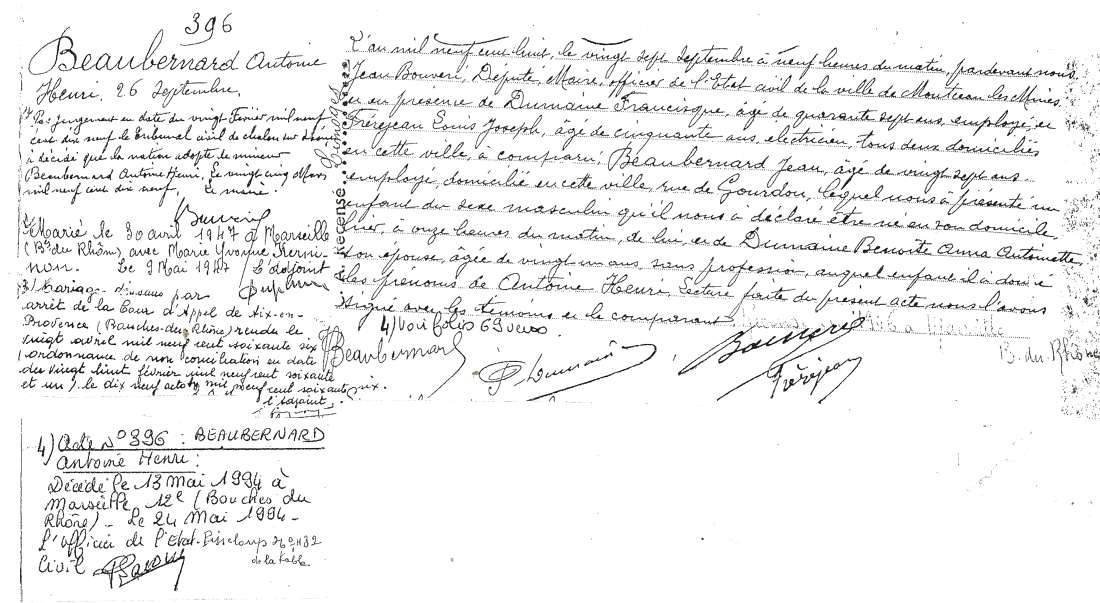 396
Beaubernard Antoine
Henri, 26 Septembre.
1) Par jugement en date du vingt Février mil neuf
cent dix neuf le Tribunal civil de chalon sur Saône
à décidé que la nation adopte le mineur
Beaubernard Antoine Henri, Le vingt cinq Mars
mil neuf cent dix neuf, Le maire.
2) Marié le 30 avril 1947 à Marseille
(B. du Rhône) avec Marie Yvonne
non. Le 9 Mai 1947 L'adjoint
3) Mariage dissous par
arrêt de la Cour d'Appel de Aix-en-
Provence (Bouches-du-Rhône) rendu le
vingt avril mil neuf cent soixante six
(ordonnance de non conciliation en date
du vingt huit février mil neuf cent soixante
et un) le dix neuf mil neuf cent soixante six.
l'adjoint,
L'an mil neuf cent huit, le vingt sept Septembre à neuf heures du matin, pardevant nous
Jean Bouveri, Député, Maire, officier de l'Etat civil de la ville de Montceau les Mines
et en présence de Dumaine Francisque, âgé de quarante sept ans, employé, et
Frérejean Louis Joseph, âgé de cinquante ans, electricien, tous deux domiciliés
en cette ville, à comparu, Beaubernard Jean, âgé de vingt sept ans
employé, domicilié en cette ville, rue de Gourdon, lequel nous à présenté un
enfant du sexe masculin qu'il nous à déclaré être né en son domicile,
hier, à onze heures du matin, de lui, et de Dumaine Benoite Anna Antoinette
son épouse, âgée de vingt un ans, sans profession, auquel enfant il à donné
les prénoms de Antoine Henri, Lecture faite du présent acte nous l'avons
signé avec les témoins et le comparant
4) Voir folio 69 verso
Beaubernard
Frérejean
B. du Rhône
4) Acte N° 396 : BEAUBERNARD
Antoine Henri :
Décédé le 13 Mai 1994 à
Marseille 12e (Bouches du
Rhône) - Le 24 Mai 1994 -
L'officier de l'Etat
Civil
de la table.